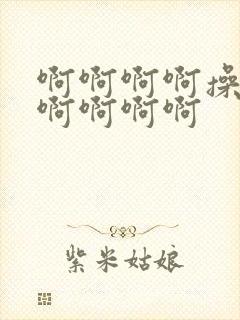 啊啊啊啊操
啊啊啊啊
紫米姑娘